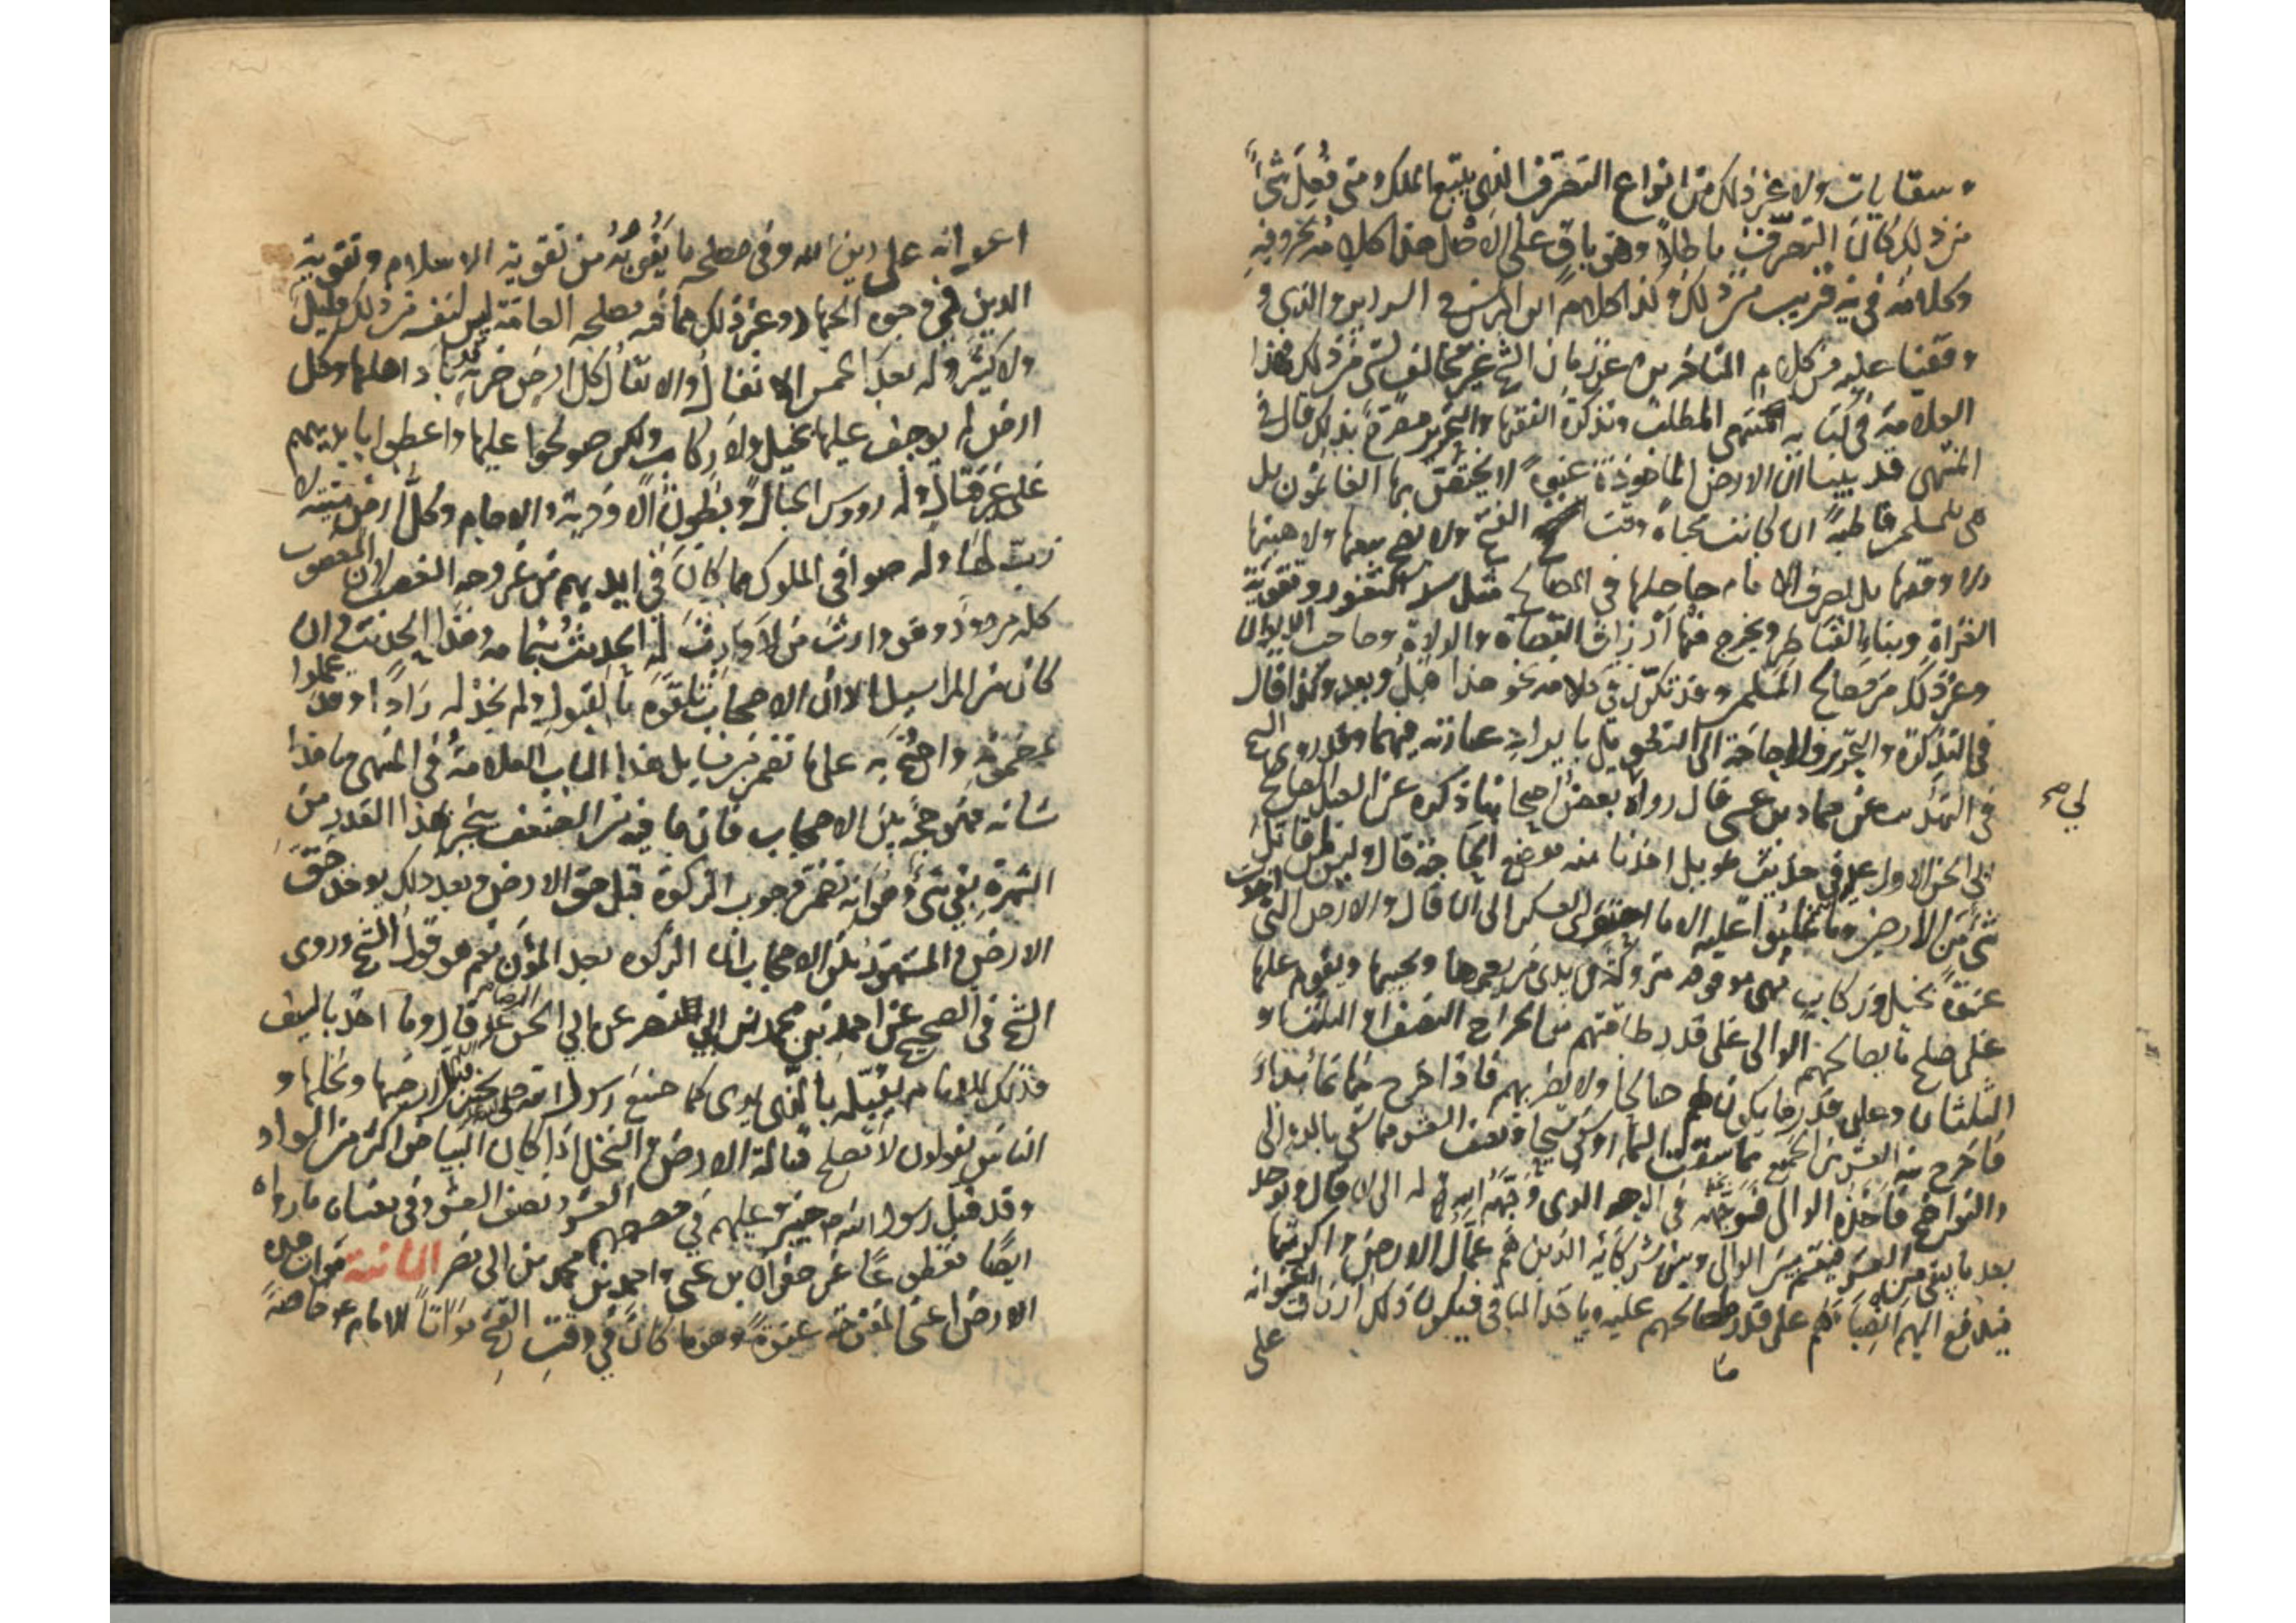 وسقايات ولا غير ذلك من انواع التصرف الذى يتبع الملك ومتى فعل شئ
من ذلك كان التصرف باطلا وهو باق على الاصل هذا كلامه بحروفه
وكلامه فى ية قريب من ذلك وكذا كلام ابن ادريس فى السرائر والذى و
وقفنا عليه من كلام المتاخرين عن زمان الشيخ غير مخالف لشئ من ذلك فهذا
العلامة فى كتابه المنتهى المطلب وتذكرة الفقها والتحرير مصرح بذلك قال فى
المنتهى قد بينا ان الارض الماخوذة عنوة لا يختص بها الغانمون بل
هى للمسلمين قاطبة ان كانت محياة وقت الفتح ولا يصح بيعها ولا هبتها
ولا وقفها بل يصرف الامام حاصلها فى المصالح مثل سد الثغور وتقوية
الغزاة وبناء القناطر ويخرج منها ارزاق القضاة والولاة وصاحب الديوان
وغير ذلك من مصالح المسلمين وقد تكرر فى كلامه نحو هذا قبل وبعد وكذا قال
فى التذكرة والتحرير ولا حاجة الى التطويل بايراد عبارته فيهما وقد روى الشيخ
فى التهذيب عن حماد بن عيسى قال رواه بعض اصحابنا ذكره عن العبد الصالح
ابى الحسن الاول ع فى حديث طويل اخذنا منه موضع الحاجة قال وليس لمن قاتل
شئ من الارضين وما غلبوا عليه الا ما احتوى العسكر الى ان قال والارض التى اخذت
عنوة بخيل وركاب فهى موقوفة متروكة فى يدى من يعمرها ويحييها ويقوم عليها
على صلح ما يصالحهم الوالى على قدر طاقتهم من الخراج النصف او الثلث او
الثلثان وعلى قدر ما يكون لهم صالحا ولا يضر بهم فاذا خرج منها نماء بداء
فاخرج منه العشر من الجميع مما سقت السماء او سقى سيحا ونصف العشر مما سقى بالدوالى
والنواضح فاخذه الوالى فوجهه فى الوجه الذى وجهه الله له الى ان قال ويوخذ
بعد ما بقى من العشر فيقسم بين الوالى وبين شركائه الذين هم عمال الارض واكرتها
فيدفع اليهم انصبائهم على قدر ما صالحهم عليه وياخذ الباقى فيكون ذلك ارزاق اعوانه
على
اعوانه على دين الله وفى مصلحة ما ينوبه من تقوية الاسلام وتقوية
الدين فى وجوه الجهاد وغير ذلك مما فيه مصلحة العامة ليس لنفسه من ذلك قليل
ولا كثير وله بعد الخمس الانفال والانفال كل ارض خربة قد باد اهلها وكل
ارض لم يوجف عليها بخيل ولا ركاب ولكن صولحوا عليها واعطوا بايديهم
على غير قتال وله رووس الجبال وبطون الاودية والاجام وكل ارض ميتة لا
رب لها وله صوافى الملوك مما كان فى ايديهم من غير وجه الغصب لان المغصوب
كله مردود وهو وارث من لا وارث له الحديث بتمامه وهذا الحديث وان
كان من المراسيل الا ان الاصحاب تلقوه بالقبول ولم نجد له رادا وقد عملوا
بمضمونه واحتج به على ما تضمن من مسائل هذا الباب العلامة فى المنتهى وما هذا
شانه فهو حجة بين الاصحاب فان ما فيه من الضعف ينجبر بهذا القدر من
الشهرة بقى شئ وهو انه تضمن وجوب الزكوة قبل حق الارض وبعد ذلك يوخذ حق
الارض والمشهور بين الاصحاب ان الزكوة بعد المؤن نعم هو قول الشيخ وروى
الشيخ فى الصحيح عن احمد بن محمد بن ابى نصر عن ابى الحسن الرضا ع قال وما اخذ بالسيف
فذلك للامام يقبله بالذى يرى كما صنع رسول الله صلى الله عليه بخيبر قبل ارضها ونخلها و
الناس يقولون لا تصلح قبالة الارض والنخل اذا كان البياض اكثر من السواد
وقد قبل رسول الله ص خيبر وعليهم فى حصصهم العشر ونصف العشر وفى معناه ما رواه
ايضا مقطوعا عن صفوان بن عيسى واحمد بن محمد بن ابى نصر الثانية موات هذه
الارض اعنى المفتوحة عنوة وهو ما كان فى وقت الفتح مواتا للامام ع خاصة